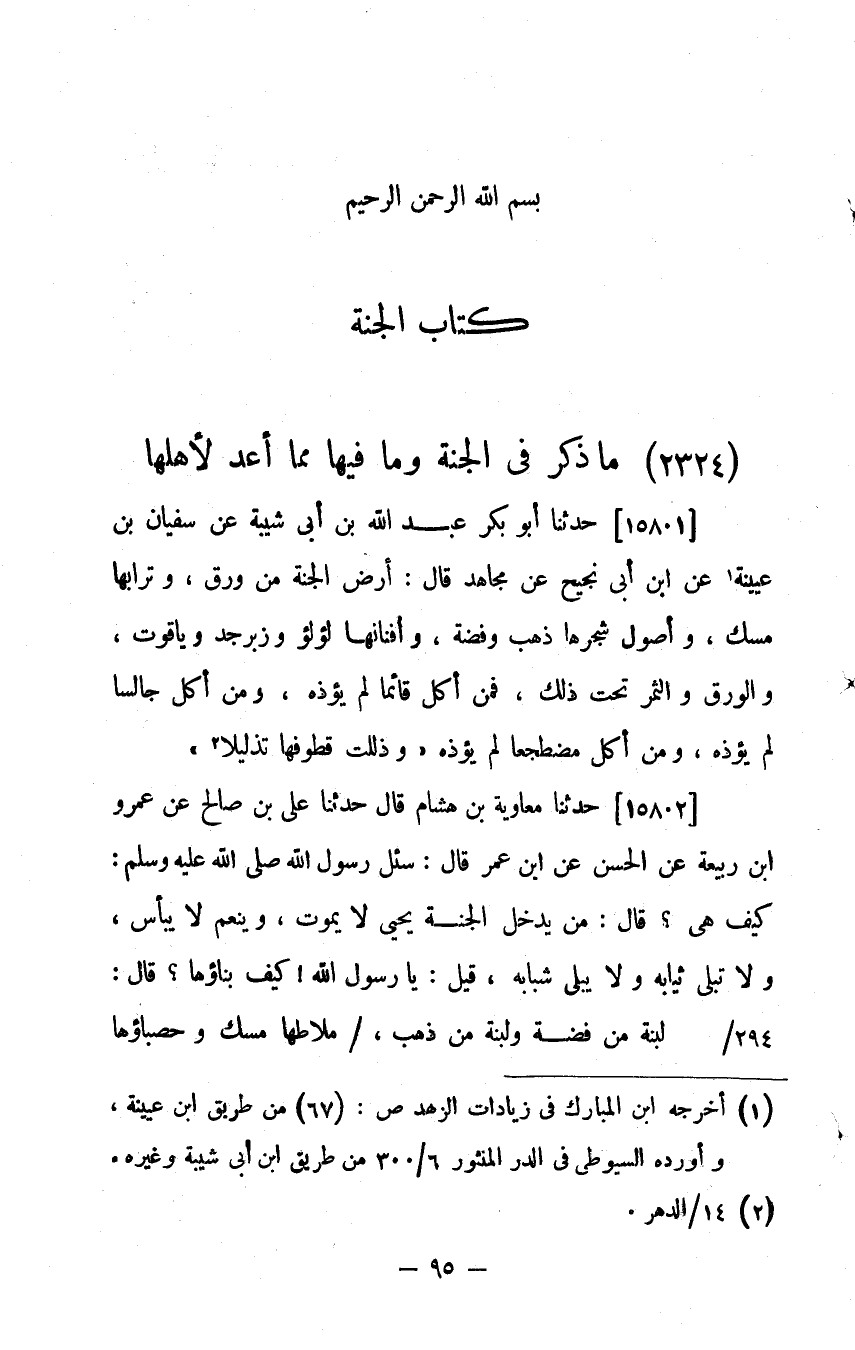 بسم الله الرحمن الرحيم
كتاب الجنة
(٢٣٢٤) ما ذكر فى الجنة وما فيها مما أعد لأهلها
[١٥٨٠١] حدثنا أبو بكر عبد الله بن أبى شيبة عن سفيان بن
عيينة١ عن ابن أبى نجيح عن مجاهد قال : أرض الجنة من ورق ، و ترابها
مسك ، و أصول شجرها ذهب وفضة ، و أفنانها لؤلؤ و زبرجد و ياقوت ،
و الورق و الثمر تحت ذلك ، فمن أكل قائما لم يؤذه ، ومن أكل جالسا
لم يؤذه ، و من أكل مضطجعا لم يؤذه « و ذللت قطوفها تذليلا٢ »
[١٥٨٠٢] حدثنا معاوية بن هشام قال حدثنا على بن صالح عن عمرو
ابن ربيعة عن الحسن عن ابن عمر قال : سئل رسول الله صلى الله عليه وسلم :
كيف هى ؟ قال : من يدخل الجنة يحيى لا يموت ، و ينعم لا يبأس ،
و لا تبلى ثيابه و لا يبلى شبابه ، قيل : يا رسول الله ! كيف بناؤها ؟ قال :
٢٩٤/ لبنة من فضة ولبنة من ذهب ، / ملاطها مسك و حصباؤها
(١) أخرجه ابن المبارك فى زيادات الزهد ص : (٦٧) من طريق ابن عيينة ،
و أورده السيوطى فى الدر المنثور ٣٠٠/٦ من طريق ابن أبى شيبة وغيره .
(٢) ١٤/الدهر .
— ٩٥ —